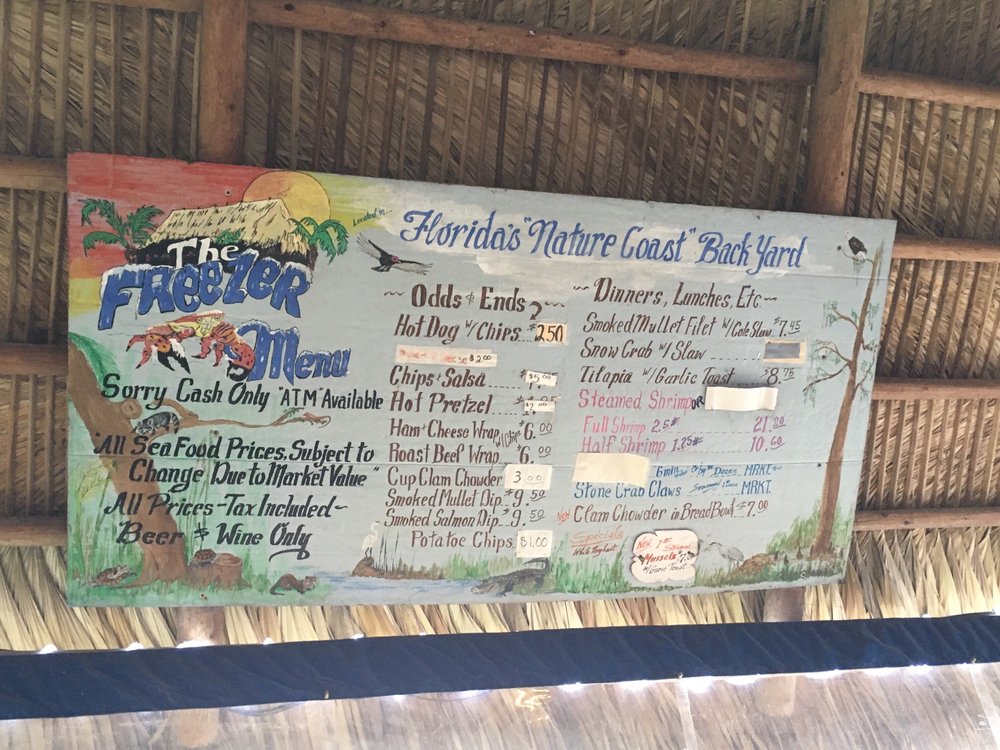 The
FREEZER
Menu
Sorry Cash Only "ATM" Available
"All Sea Food Prices, Subject to
Change Due to Market Value"
All Prices - Tax Included -
Beer & Wine Only
Located in...
Florida's "Nature Coast" Back Yard
Odds & Ends
Hot Dog w/ Chips $2.50
$2.00
Chips & Salsa $5.00
Hot Pretzel
Ham & Cheese Wrap w/ Chips $6.00
Roast Beef Wrap $6.00
Cup Clam Chowder 3.00
Smoked Mullet Dip $9.50
Smoked Salmon Dip $9.50
Potatoe Chips $1.00
Dinners, Lunches, Etc.
Smoked Mullet Filet w/ Cole Slaw $7.45
Snow Crab w/ Slaw
Tilapia w/ Garlic Toast $8.75
Steamed Shrimp OR
Full Shrimp 2.5# 21.00
Half Shrimp 1.25# 10.60
Dozen MRKT.
Stone Crab Claws MRKT.
New Clam Chowder in Bread Bowl $7.00
Specials
White Board
New 1# Steamed
Mussels $7
w/ Garlic Toast